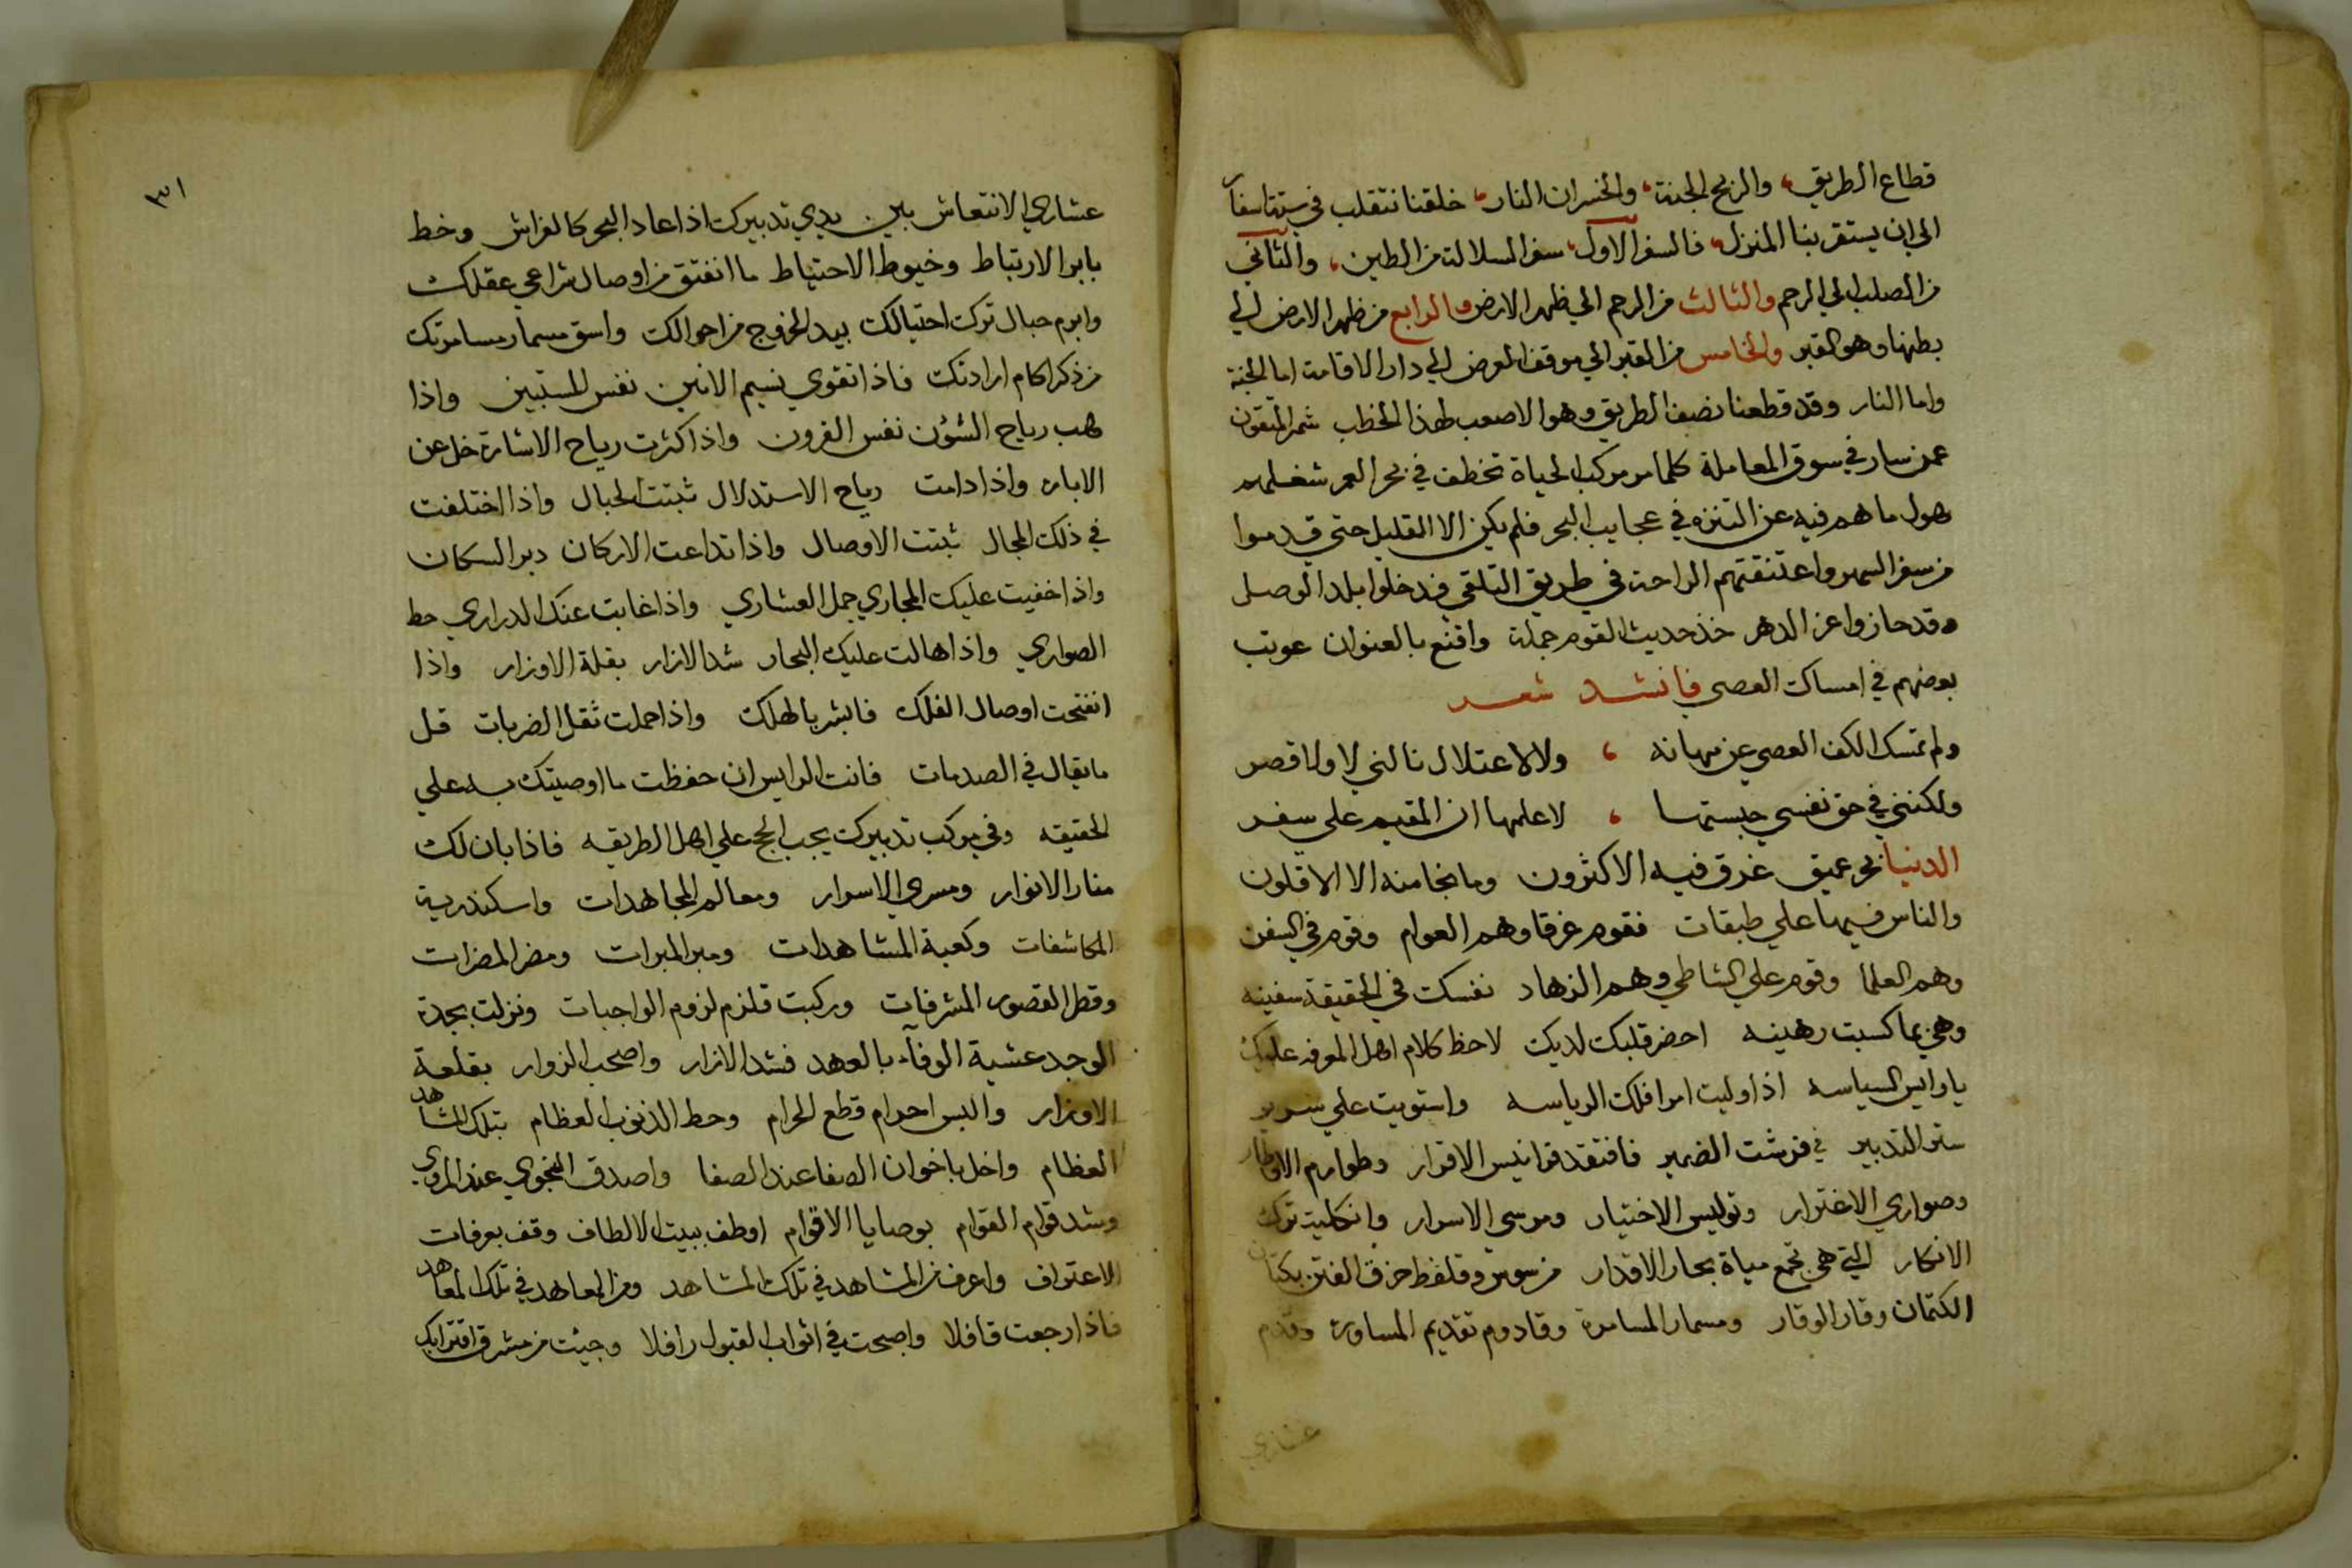 قطاع الطريق، والربح الجنة، والخسران النار، خلقنا نتقلب في ستة اسفار
الي ان يستقر بنا المنزل، فالسفر الاول، سفر السلالة من الطين، والثاني
من الصلب الي الرحم والثالث من الرحم الي ظهر الارض والرابع من ظهر الارض الي
بطنها وهو القبر والخامس من القبر الي موقف العرض الي دار الاقامة اما الجنة
واما النار وقد قطعنا نصف الطريق وهو الاصعب لهذا الخطب شمر المتقون
عمن سار في سوق المعاملة كلما مر مركب الحياة تخطف في بحر العمر شغلهم
هول ما هم فيه عن التنزه في عجايب البحر فلم يكن الا القليل حتي قدموا
من سفر السهر واعتنقتهم الراحة في طريق التلقي فدخلوا بلد الوصل
وقد حازوا عز الدهر خذ حديث القوم جملة واقنع بالعنوان عوتب
بعضهم في امساك العصي فانشد شعر
ولم تمسك الكف العصي عن مهانه ، ولا لاعتلال نالني لا ولا قصر
ولكنني في حق نفسي حبستها ، لاعلمها ان المقيم علي سفر
الدنيا بحر عميق غرق فيه الاكثرون وما نجا منه الا الاقلون
والناس فيها علي طبقات فقوم غرقا وهم العوام وقوم في السفن
وهم العلما وقوم علي الشاطي وهم الزهاد نفسك في الحقيقة سفينه
وهي بما كسبت رهينه احضر قلبك لديك لاحظ كلام اهل المعرفه عليك
يا رايس السياسه اذا وليت امر افلك الرياسه واستويت علي سرير
ستر التدبير في فرشت الضمير فافتقد قرانيس الاقرار وطوارم الاوطار
وصواري الاغترار وتوليس الاختيار ومرسي الاسرار وانكليت ترك
الانكار التي هي تجمع مياة بحار الاقدار وقلفظ حزق الفتن بكتان
الكتمان وقار الوقار ومسمار المسامرة وقادوم تقديم المساورة وقدم
عشاري
٣١
عشاري الانتعاش بين يدي تدبيرك اذا عاد البحر كالفراش وخط
بابر الارتباط وخيوط الاحتياط ما انفتق من اوصال شراعي عقلك
وابرم حبال ترك احتيالك بيد الخروج من احوالك واسق مسمار مسامرتك
من ذكر اكام ارادتك فاذا تقوي نسيم الانين نفس للمستبين واذا
هب رياح الشؤن نفس القرون واذا كثرت رياح الاشارة خل عن
الاباره واذا دامت رياح الاستدلال ثبتت الحبال واذا اختلفت
في ذلك المجال ثبتت الاوصال واذا تداعت الاركان دبر السكان
واذا خفيت عليك المجاري جمل العشاري واذا غابت عنك الدراري حط
الصواري واذا هالت عليك البحار شد الازار بقلة الاوزار واذا
انفتحت اوصال الفلك فابشر بالهلك واذا حملت ثقل الضربات قل
ما يقال في الصدمات فانت الرايس ان حفظت ما اوصيتك به علي
الحقيقه وفي مركب تدبيرك يجب الحج علي اهل الطريقه فاذا بان لك
منار الانوار ومسري الاسرار ومعالم المجاهدات واسكندرية
المكاشفات وكعبة المشاهدات ومبر المبرات ومضر المضرات
وقطر القصور المشرفات وركبت قلزم لزوم الواجبات ونزلت بجدة
الوجد عشية الوفاء بالعهد فشد الازار واصحب الزوار بقلعة
الاوزار والبس احرام قطع الحرام وحط الذنوب العظام بتلك المشاهد
العظام واخل باخوان الصفا عند الصفا واصدق النجوي عند المروي
وشد قوام القوام بوصايا الاقوام اوطف ببيت الالطاف وقف بعرفات
الاعتراف واعرف من المشاهد في تلك المشاهد ومن المعاهد في تلك المعاهد
فاذا رجعت قافلا واصبحت في اثواب القبول رافلا وجيت من مشرق اقترابك